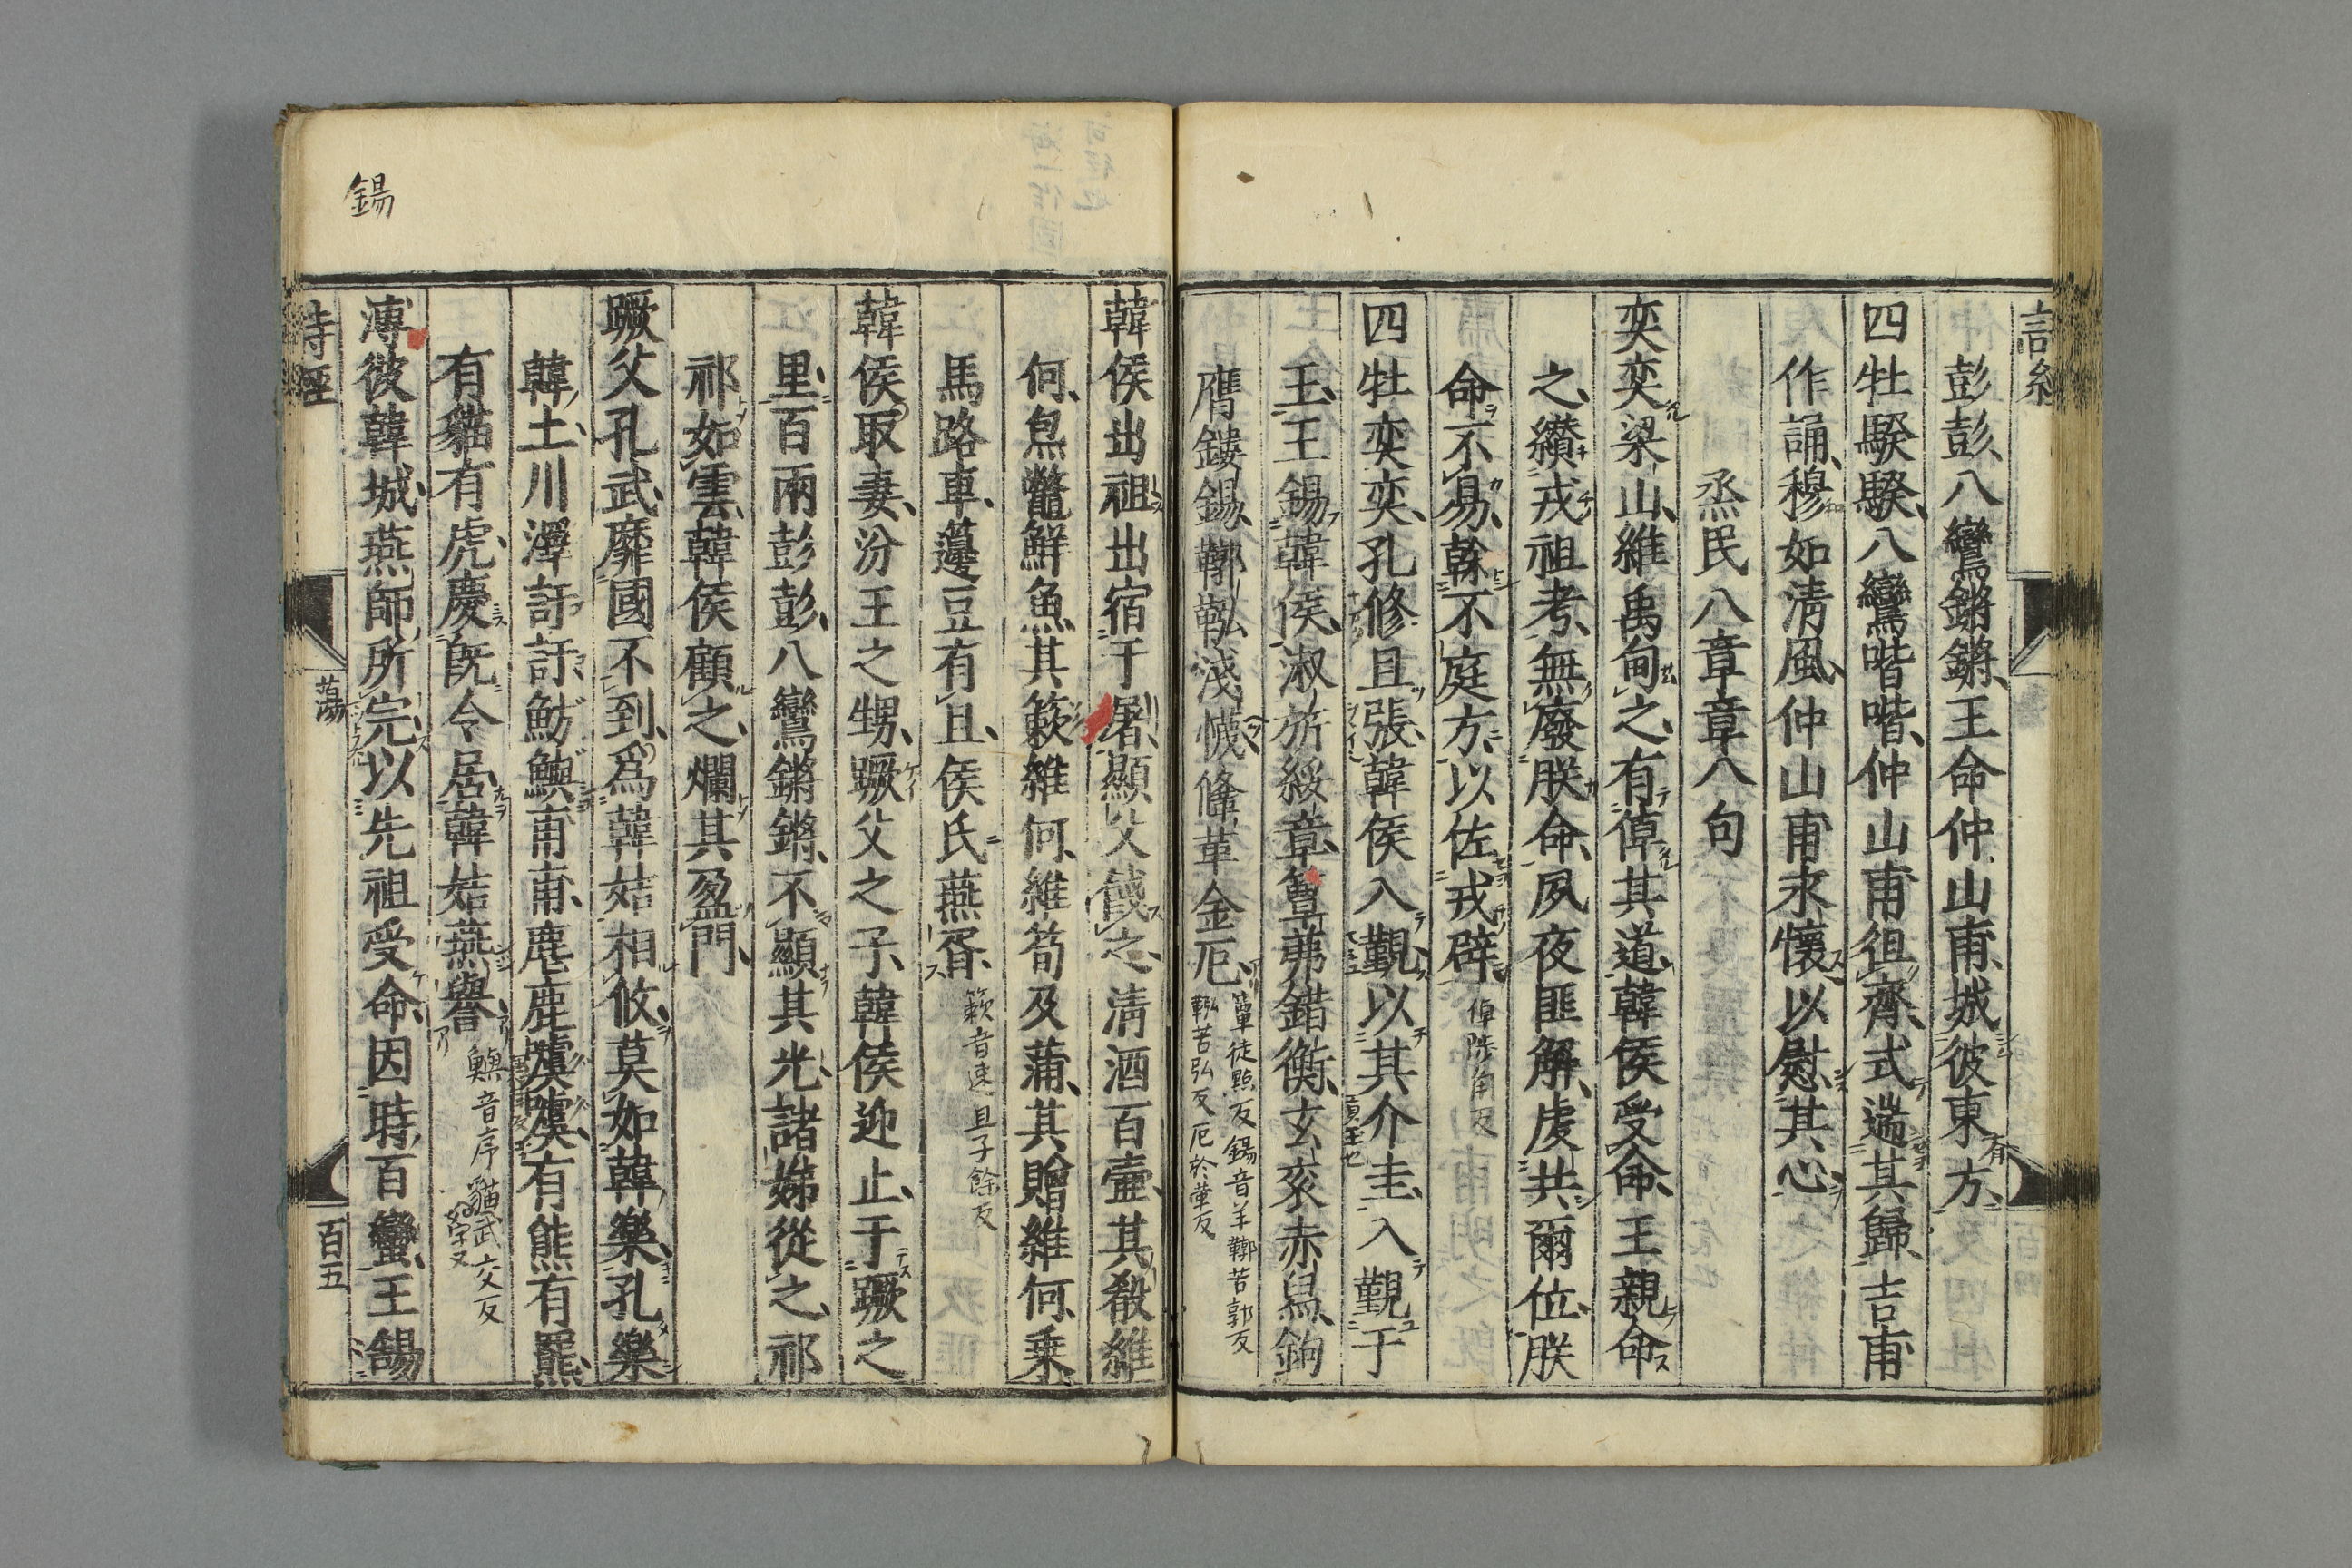 彭彭八鸞鏘鏘王命仲山甫城彼東方
四牡騤騤八鸞喈喈仲山甫徂齊式遄其歸吉甫
作誦穆如淸風仲山甫永懷以慰其心
烝民八章章八句
奕奕梁山維禹甸之有倬其道韓侯受命王親命
之纘戎祖考無廢朕命夙夜匪解虔共爾位朕
命不易榦不庭方以佐戎辟
倬陟角反
四牡奕奕孔修且張韓侯入覲以其介圭入覲于
王王錫韓侯淑旂綏章簟茀錯衡玄衮赤舄鉤
膺鏤鍚鞹鞃淺幭鞗革金厄
簟徒點反鍚音羊鞹苦郭反
鞃苦弘反厄於革反
韓侯出祖出宿于屠顯父餞之淸酒百壺其殽維
何炰鼈鮮魚其蔌維何維筍及蒲其贈維何乗
馬路車籩豆有且侯氏燕胥
蔌音速且子餘反
韓侯取妻汾王之甥蹶父之子韓侯迎止于蹶之
里百兩彭彭八鸞鏘鏘不顯其光諸娣從之祁
祁如雲韓侯顧之爛其盈門
蹶父孔武靡國不到爲韓姞相攸莫如韓樂孔樂
韓土川澤訏訏魴鱮甫甫麀鹿噳噳有熊有羆
有貓有虎慶旣令居韓姞燕譽
鱮音序貓武交反
溥彼韓城燕師所完以先祖受命因時百蠻王錫
詩經
蕩
百五
鍚